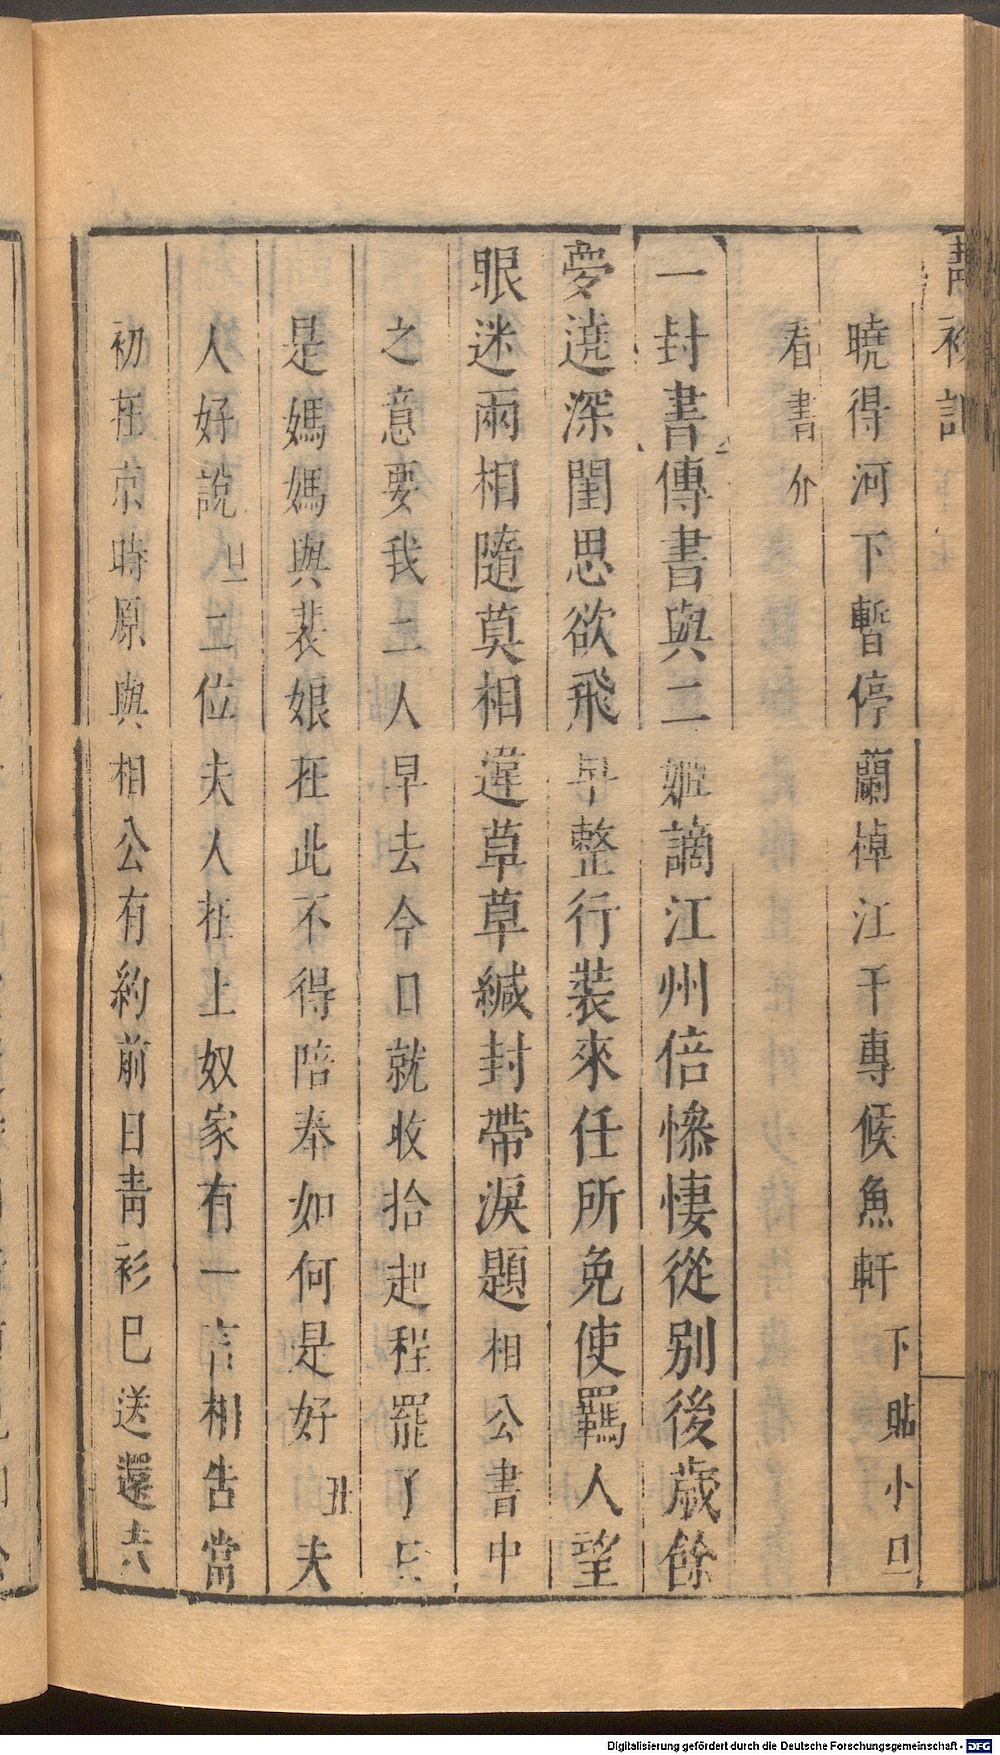 青衫記
曉得河下暫停蘭棹江干專候魚軒下貼小旦
看書介
一封書傳書與二姬謫江州倍慘悽從别後歲餘
夢遶深閨思欲飛早整行裝來任所免使羈人望
眼迷兩相隨莫相違草草緘封帶淚題相公書中
之意要我二人早去今日就收拾起程罷了只
是媽媽與裴娘在此不得陪奉如何是好丑夫
人好說旦二位夫人在上奴家有一言相告當
初在京時原與相公有約前日靑衫已送還去
Digitalisierung gefördert durch die Deutsche Forschungsgemeinschaft - DFG